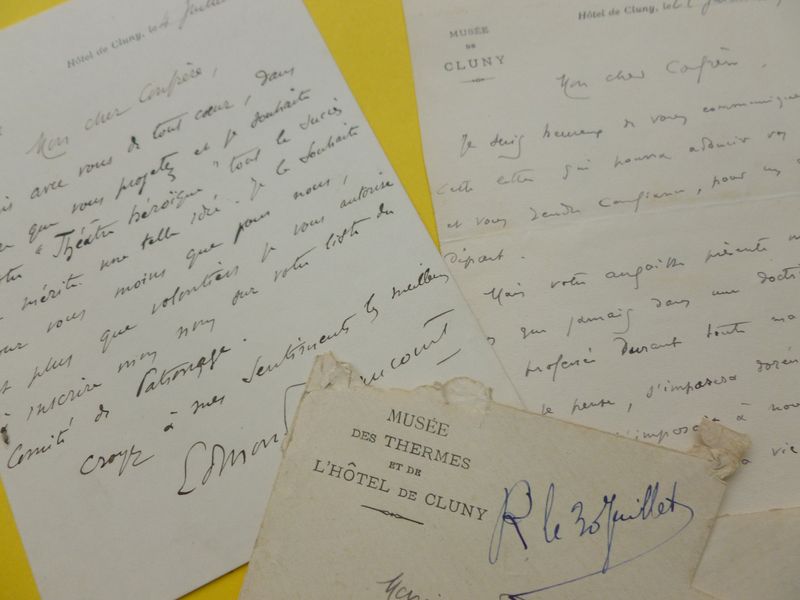 Hôtel de Cluny, le 4 Juillet
Mon cher Confrère,
avec vous de tout cœur, dans
que vous projetez et je souhaite
"Théâtre héroïque" tout le succès
mérite une telle idée. Je le souhaite
vous moins que pour nous,
plus que volontiers je vous autorise
à inscrire mon nom sur votre liste du
Comité de Patronage.
Croyez à mes sentiments les meilleurs
Edmond
MUSÉE
DE
CLUNY
Hôtel de Cluny, le
Mon cher Confrère,
Je suis heureux de vous communiquer
Cette lettre qui pourra adoucir vos
et vous rendre Confiance, pour un
Départ.
Mais votre angoisse présente
que jamais dans une
professée Durant toute ma
pense, s'imposera
s'imposera à
vie
MUSÉE
DES THERMES
ET DE
L'HÔTEL DE CLUNY
R le 30 Juillet